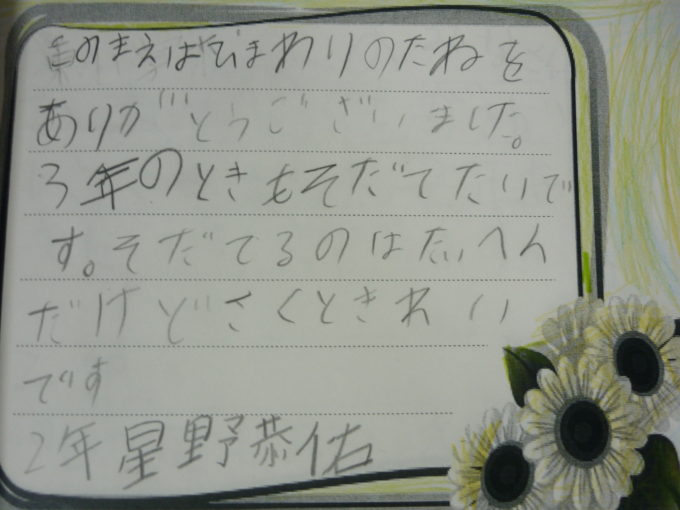 このまえはひまわりのたねを
ありがとうございました。
3年のときもそだてたいで
す。そだてるのはたいへん
だけどさくときれい
です
2年星野恭佑